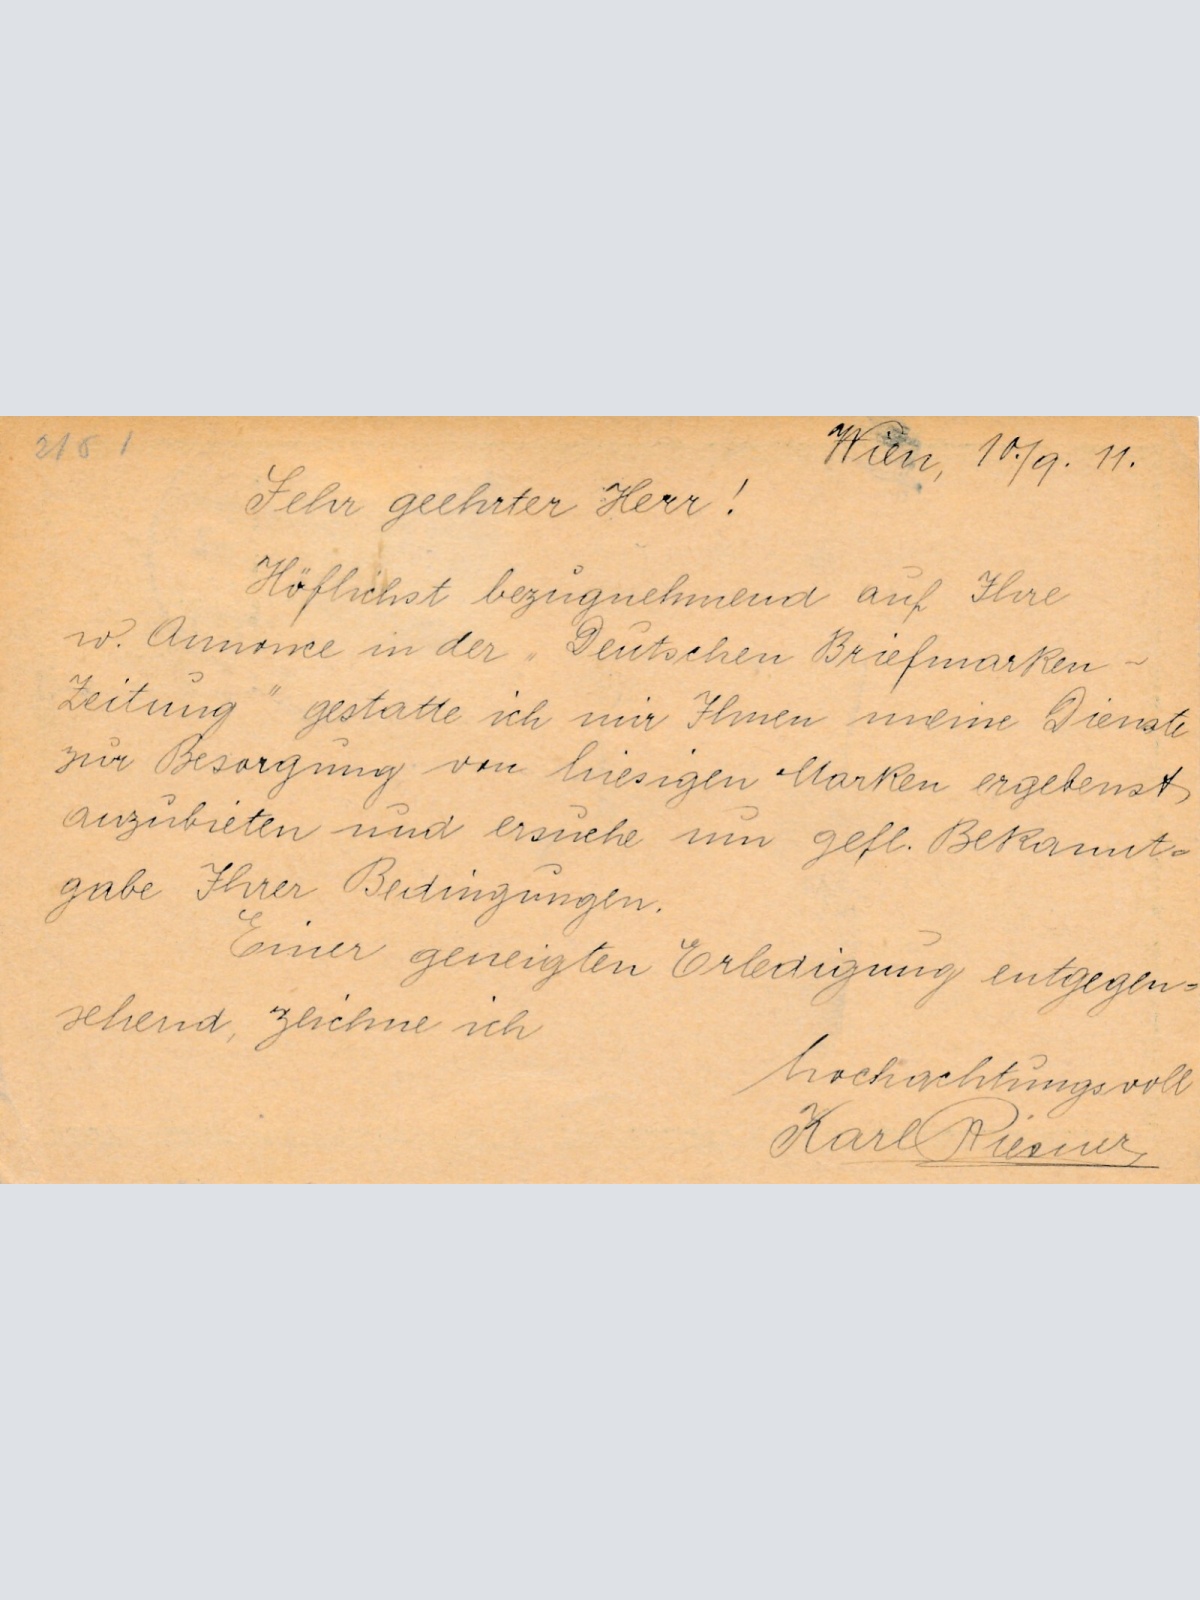 Wien, 10./9. 11.
Sehr geehrter Herr!
Höflichst bezugnehmend auf Ihre
w. Annonce in der „Deutschen Briefmarken-
Zeitung" gestatte ich mir Ihnen meine Dienste
zur Besorgung von hiesigen Marken ergebenst
anzubieten und ersuche um gefl. Bekannt=
gabe Ihrer Bedingungen.
Einer geneigten Erledigung entgegen=
sehend, zeichne ich
hochachtungsvoll
Karl